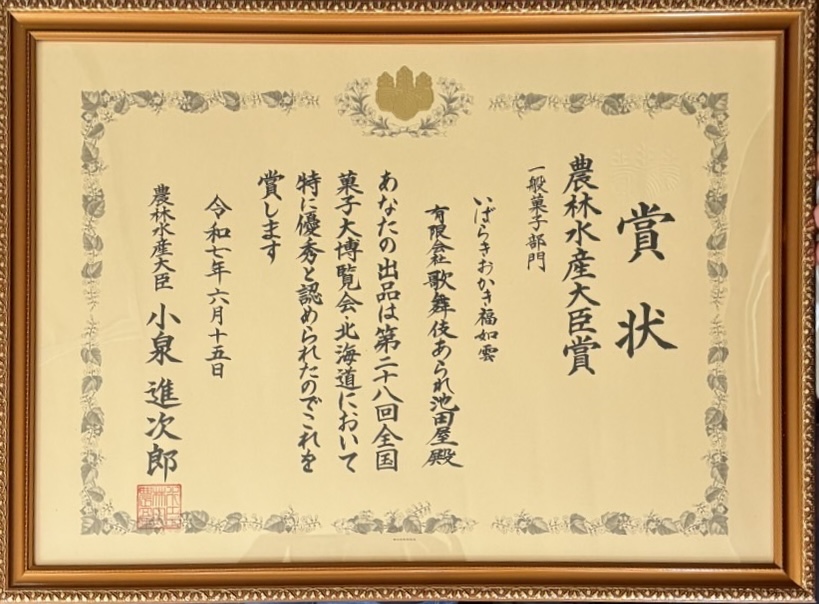 賞状
農林水産大臣賞
一般菓子部門
いばらきおかき福如雲
有限会社歌舞伎あられ池田屋殿
あなたの出品は第二十八回全国
菓子大博覧会・北海道において
特に優秀と認められたのでこれを
賞します
令和七年六月十五日
農林水産大臣 小泉進次郎